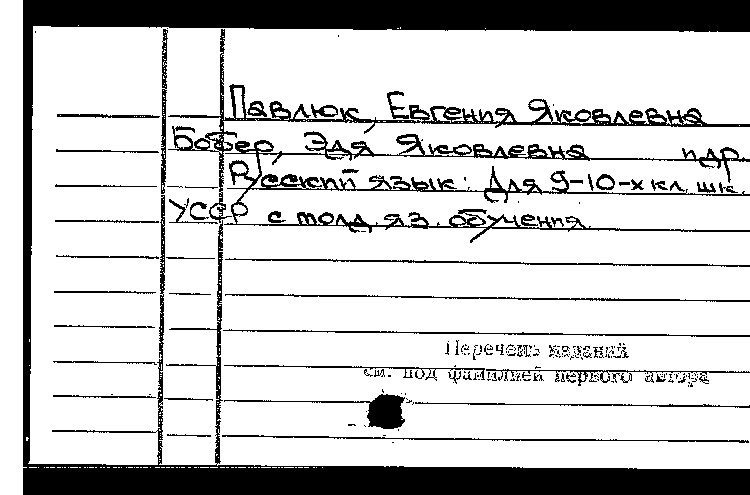 Павлюк, Евгения Яковлевна
Бобер, Эдя Яковлевна пдр.
Русский язык: Для 9-10-х кл. шк.
УССР с молд. яз. обучения.
Перечень изданий
см. под фамилией первого автора